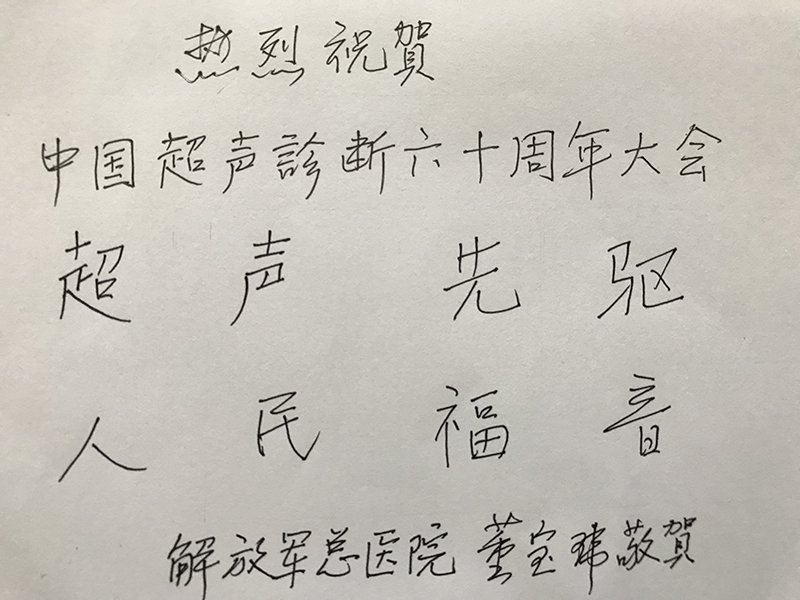 热烈祝賀
中国超声診断六十周年大会
超声先驱
人民福音
解放军总医院 董宝玮敬賀